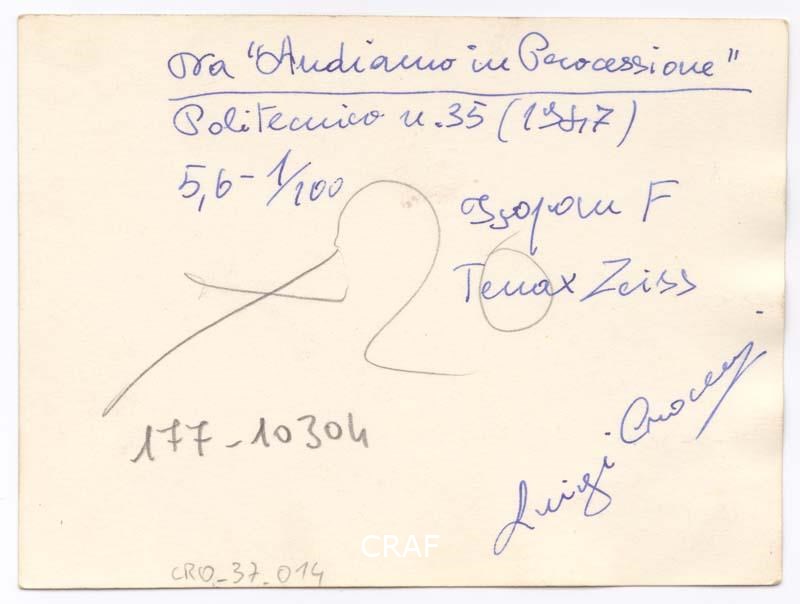 Da "Andiamo in Processione"
Politecnico n.35 (1947)
5,6 - 1/100
Isopan F
Tenax Zeiss
26
Luigi Crocenzi
177-10304
CRAF
CRO_37_014